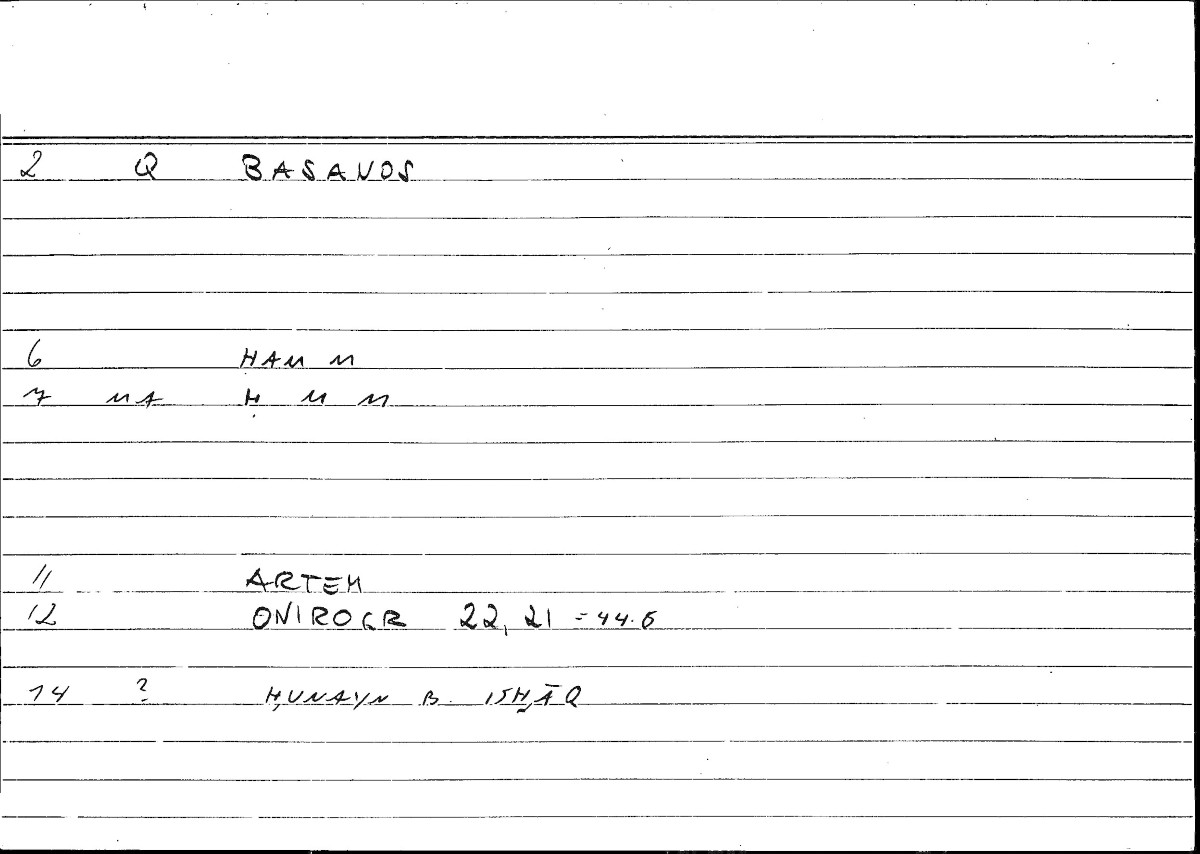 2 Q BASANOS
6 HAM M
7 MA Ḥ M M
11 ARTEM
12 ONIROCR 22, 21 = 44.6
14 ? ḤUNAYN B. ISḤĀQ